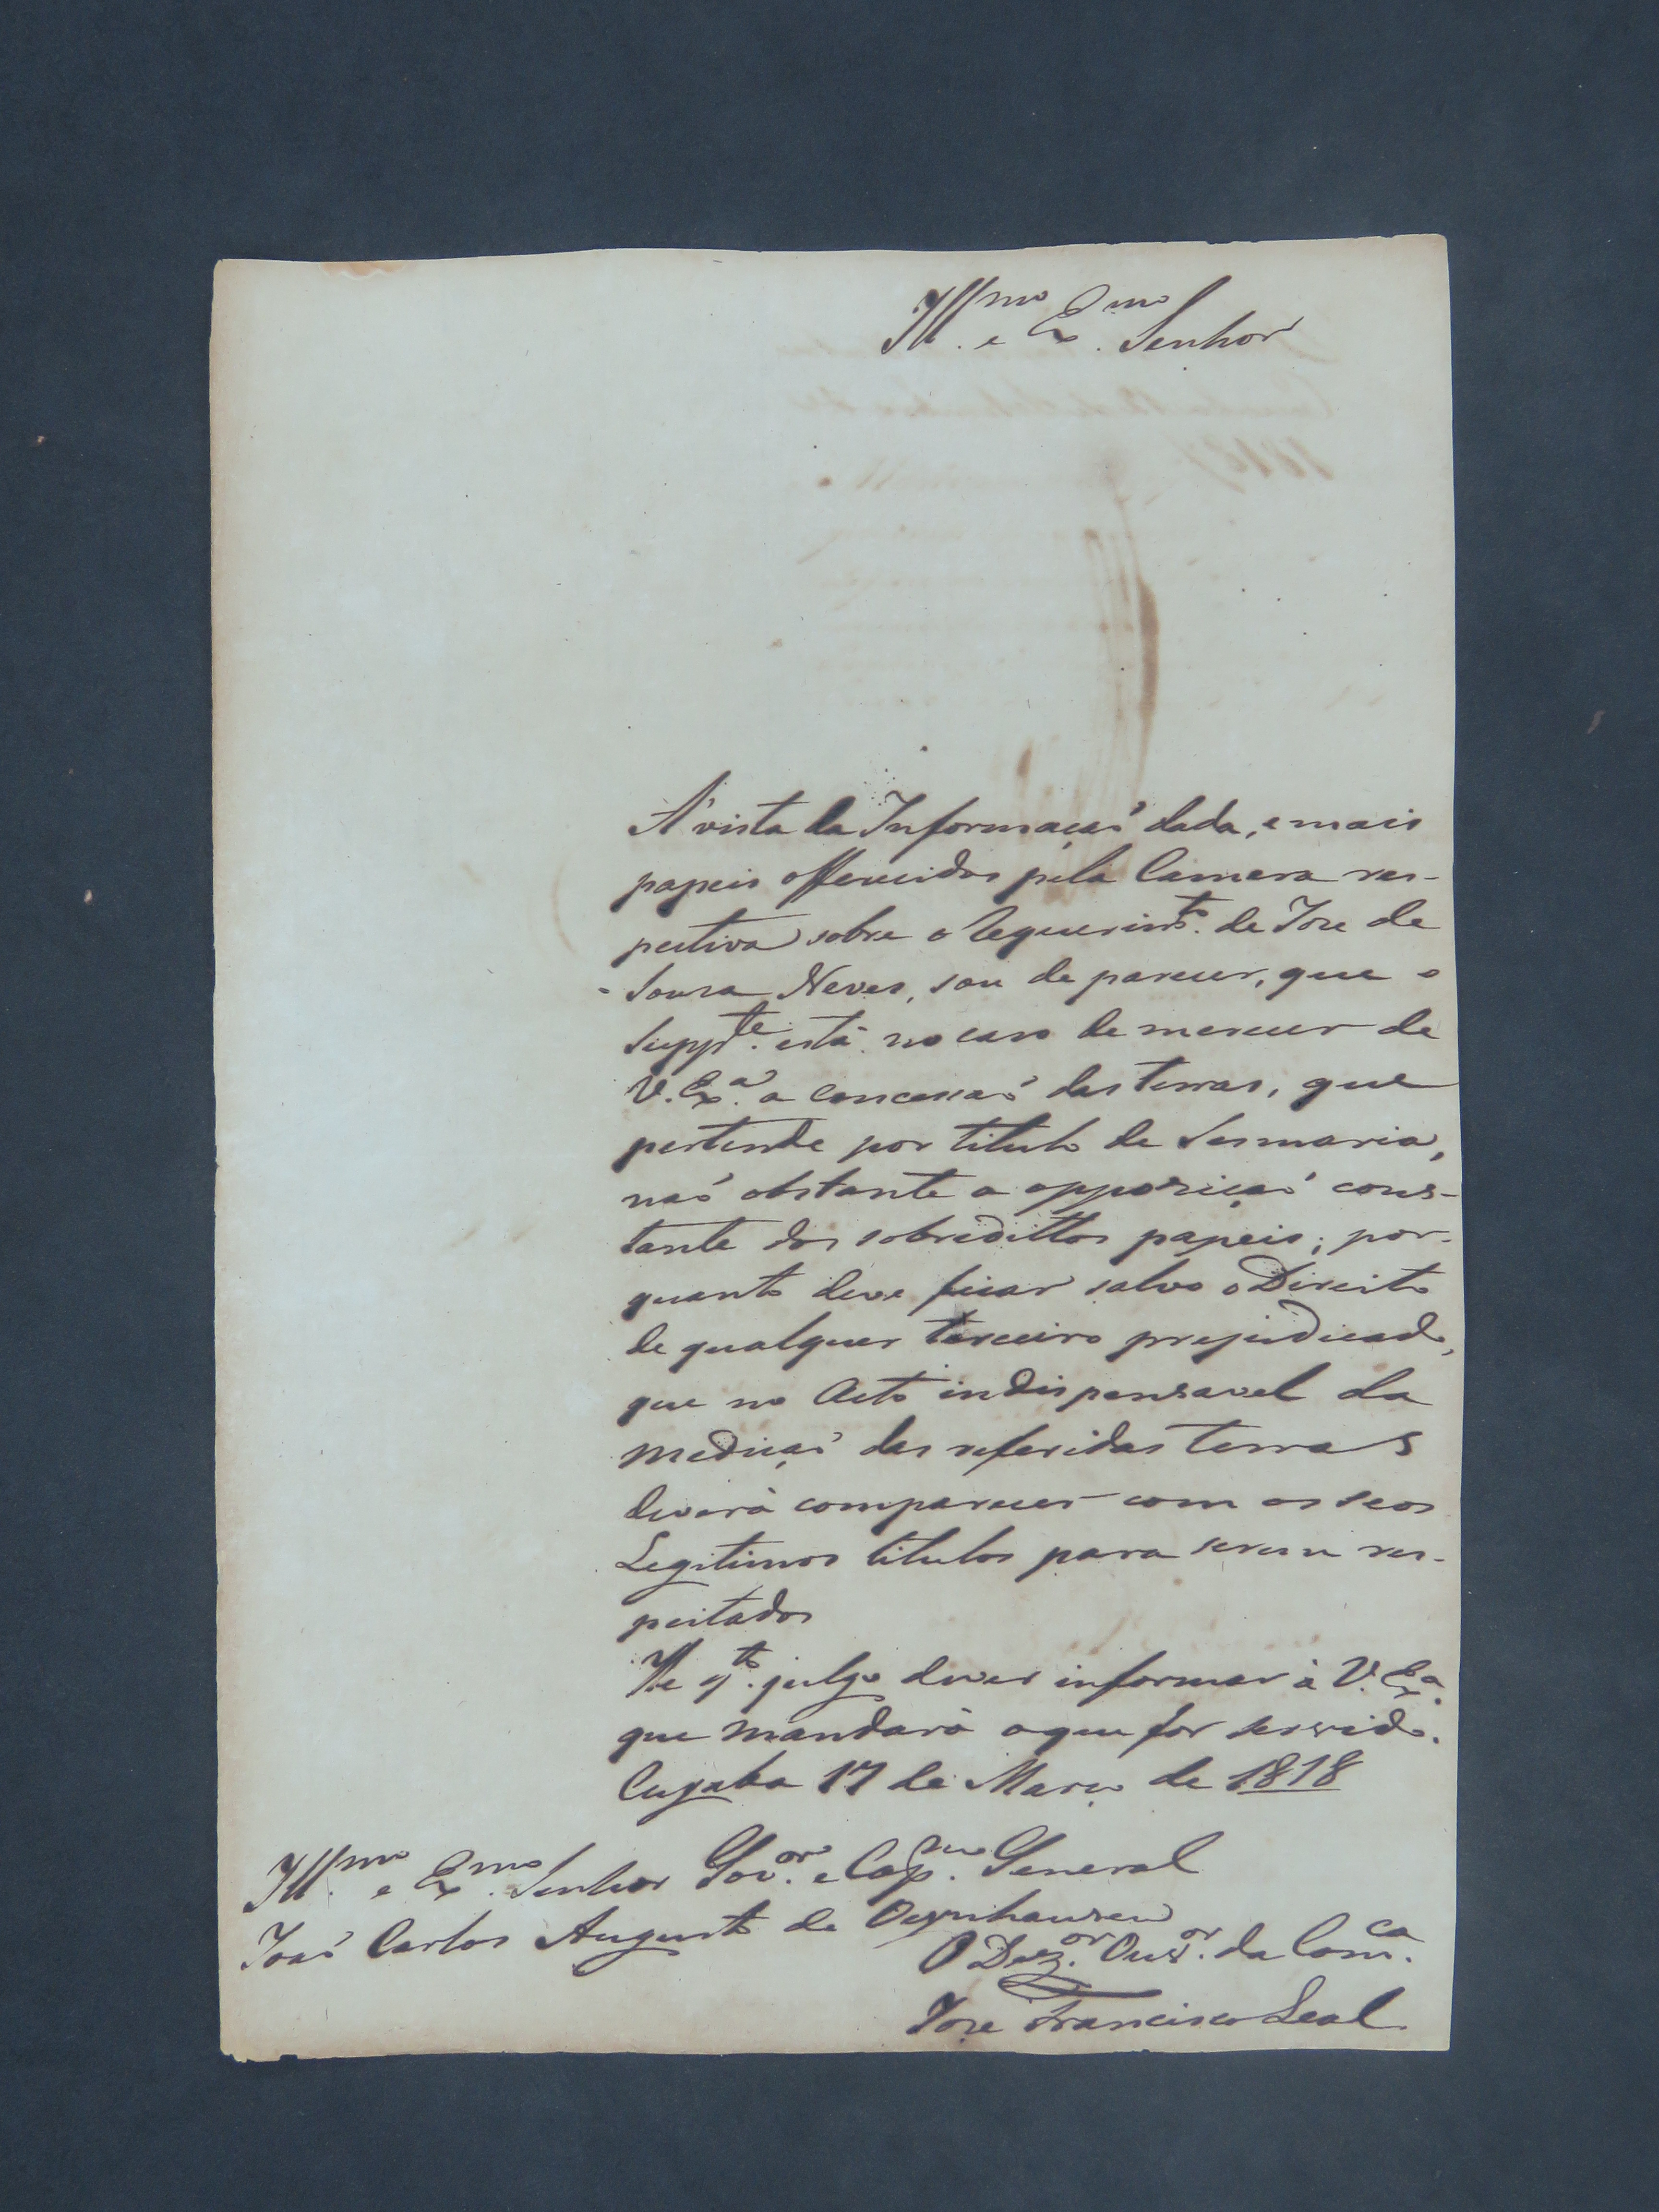 Ill.mo e Ex.mo Senhor
A' vista da Informaçaó dada, e mais
papeis offerecidos pela Camera res-
pectiva sobre o Requerim.to de Joze de
Souza Neves, sou de parecer, que o
Supp.te está no caso de merecer de
V. Ex.a a concessaó das terras, que
pertende por titulo de Sesmaria,
naó obstante a opposiçaó cons-
tante dos sobredittos papeis; por-
quanto deve ficar salvo o Direito
de qualquer terceiro prejudicado,
que no Acto indispensavel da
mediçaó das referidas terras
deverá comparecer com os seos
Legitimos titulos para serem res-
peitados
He q.to julgo dever informar á V. Ex.a
que mandará o que for servido.
Cuyaba 17 de Março de 1818
Ill.mo e Ex.mo Senhor Gov.or e Cap.m General
Joaó Carlos Augusto de Oeynhausen
O Dez.or Ouv.or da Com.ca
Joze Francisco Leal